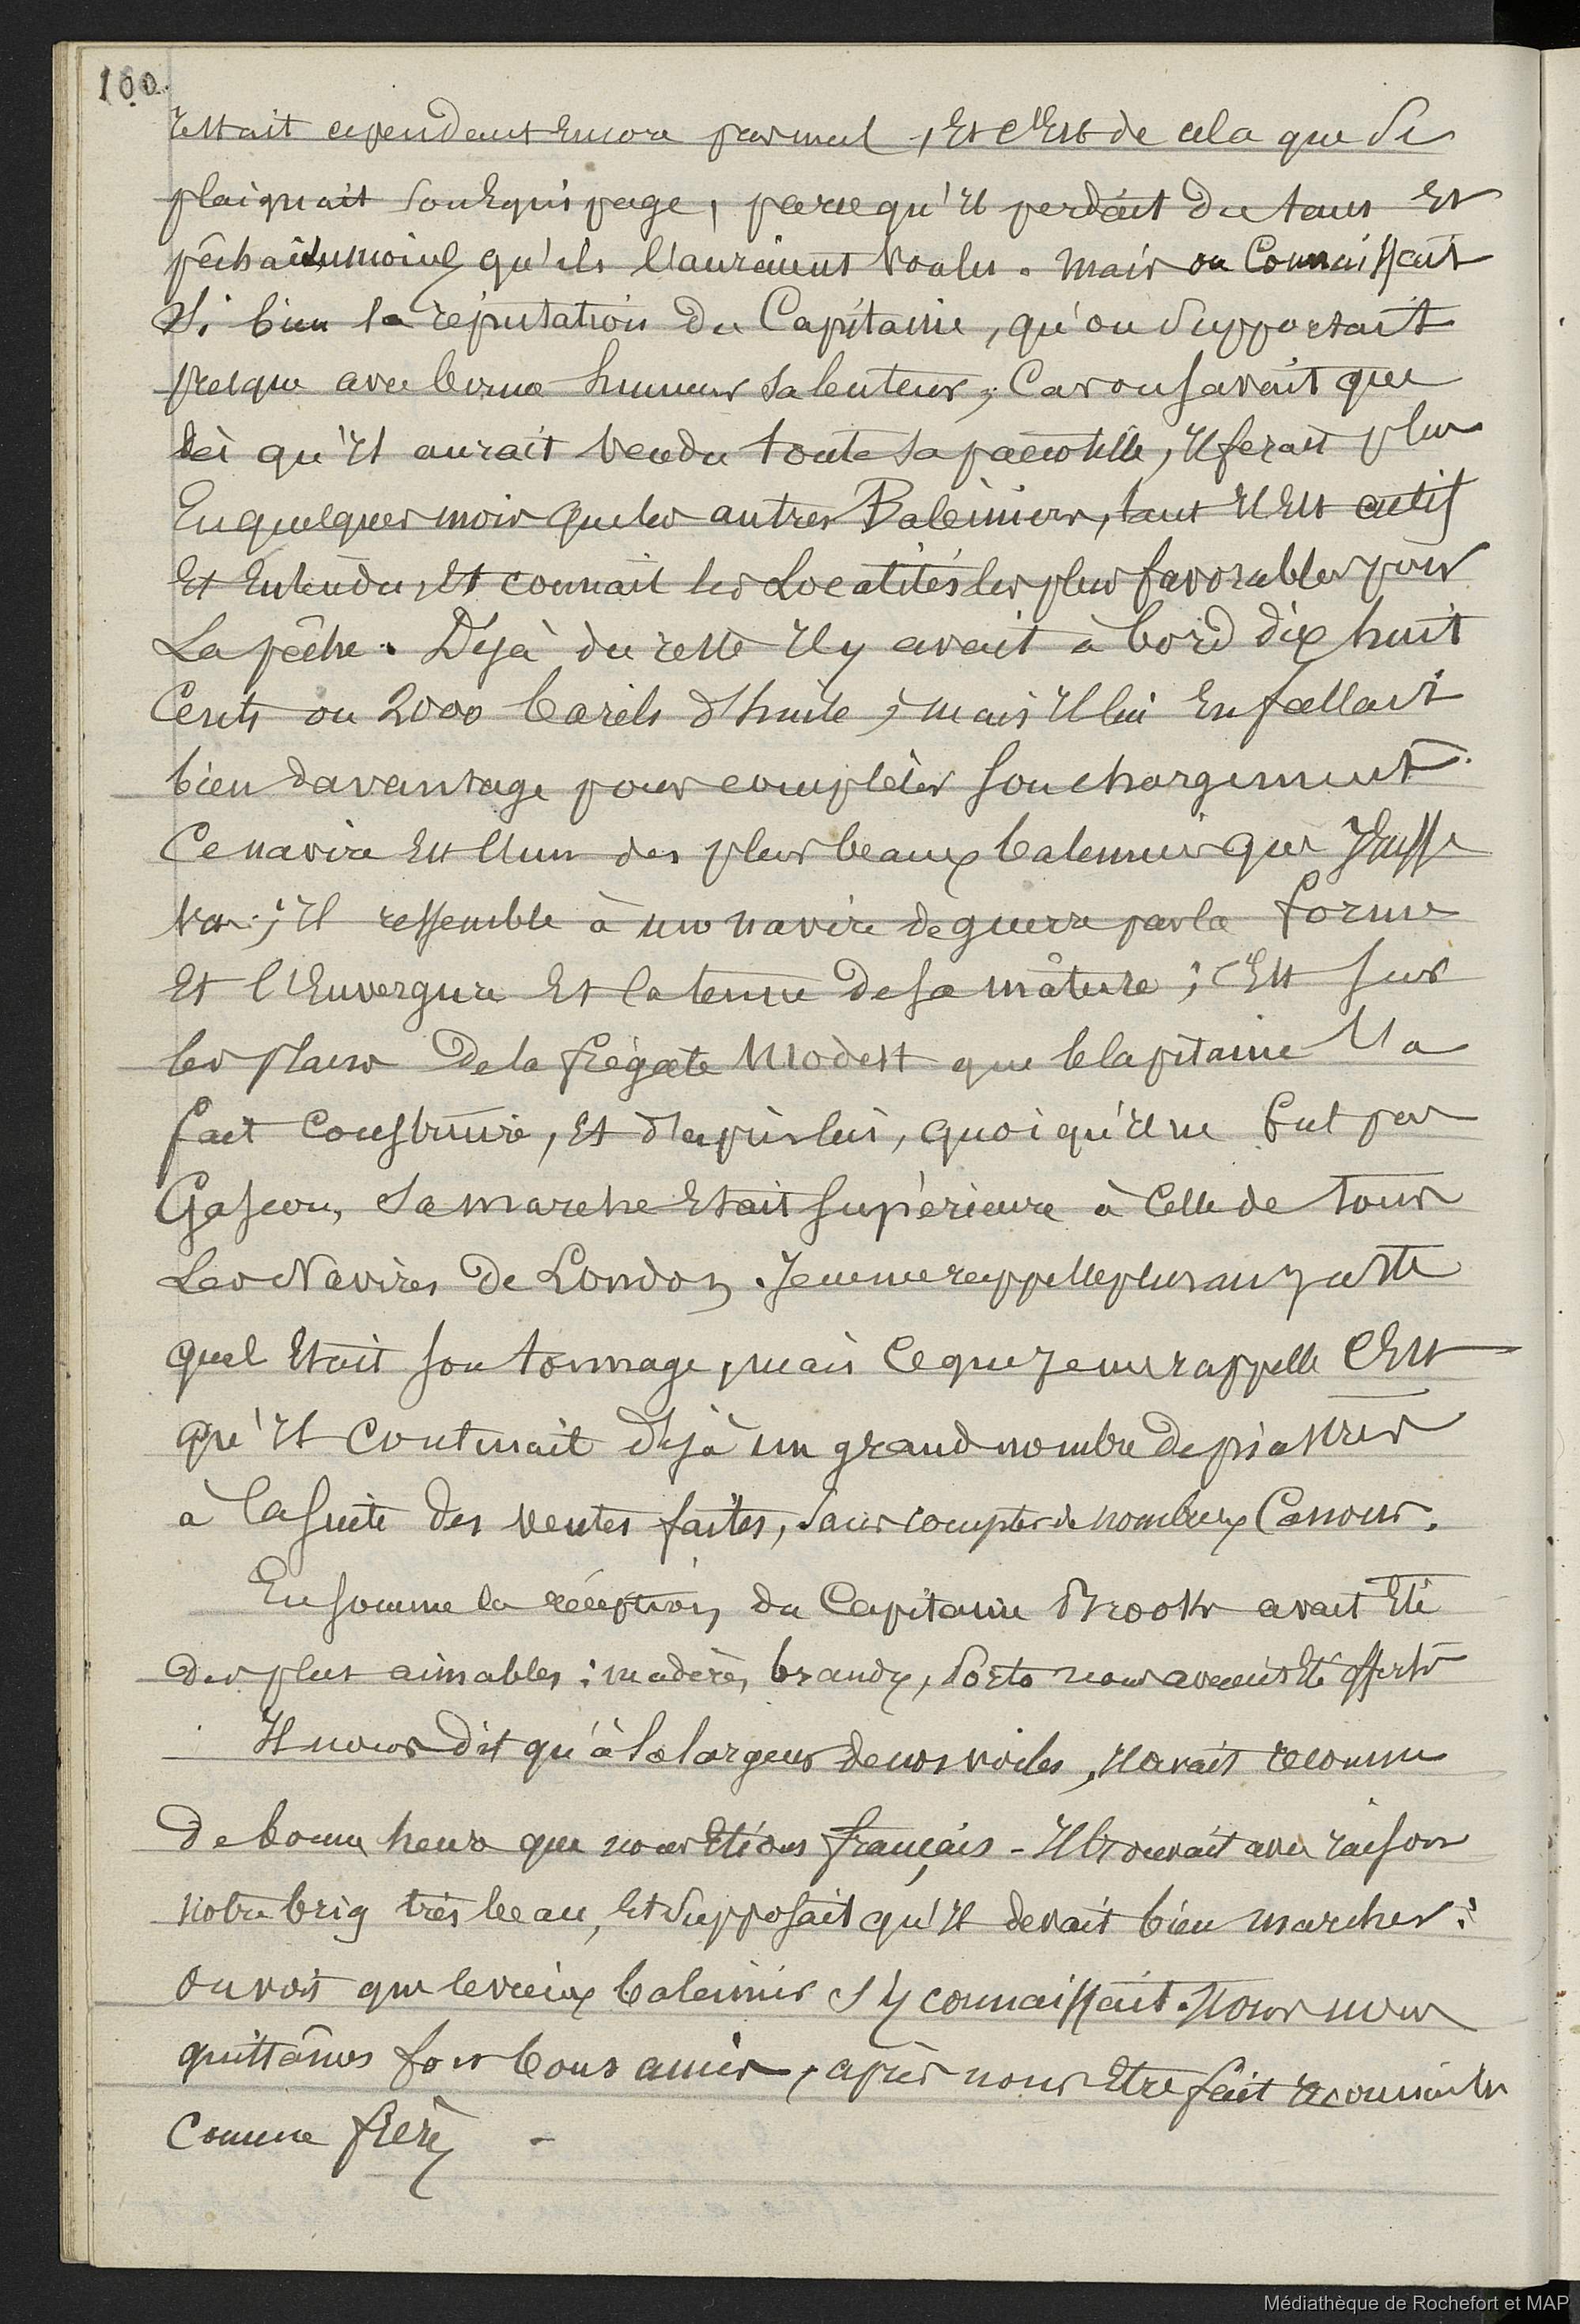 100.
restait cependant encore pas mal, Et c'Est de cela que se
plaignait son Equipage, parcequ'Il perdait du tems Et
pêchait moins qu'ils l'auraient voulu. Mais on Connaissait
si bien la réputation du Capitaine, qu'on supportait
presque avec bonne humeur sa lenteur; Car on savait que
dès qu'Il aurait vendu toute sa pacotille, Il ferait plus
En quelques mois que les autres Baleiniers, tant Il Est actif
Et Entendu, Et connait les Localités les plus favorables pour
La pêche. Déjà du reste Il y avait à bord dix huit
Cents ou 2000 barils d'huile; mais Il lui En fallait
bien davantage pour compléter son chargement.
Ce navire Est l'un des plus beaux baleiniers que J'Eusse
vu; Il ressemble à un navire de guerre par la forme
Et l'Envergure Et la tenue de sa mâture; c'Est sur
les plans de la frégate Modest que le Capitaine l'a
fait construire, Et d'après lui, quoiqu'Il ne fut pas
Gascon, sa marche Etait supérieure à Celle de tous
Les Navires de London. Je ne me rappelle plus au juste
quel Etait son tonnage, mais ce que je me rappelle c'Est
qu'Il contenait déjà un grand nombre de piastres
à la suite des ventes faites, sans compter de nombreux Canons.
En somme la réception du Capitaine Brooks avait Eté
des plus aimables: madère, brandy, Porto nous avaient Eté offerts
Il nous dit qu'à la largeur de nos voiles, Il avait reconnu
de bonne heure que nous Etions français - Il trouvait avec raison
notre brig très beau, Et supposait qu'Il devait bien marcher:
on voit que le vieux baleinier s'y connaissait. Nous nous
quittâmes fors bons amis, après nous Etre fait reconnaitre
Comme frère -
Médiathèque de Rochefort et MAP